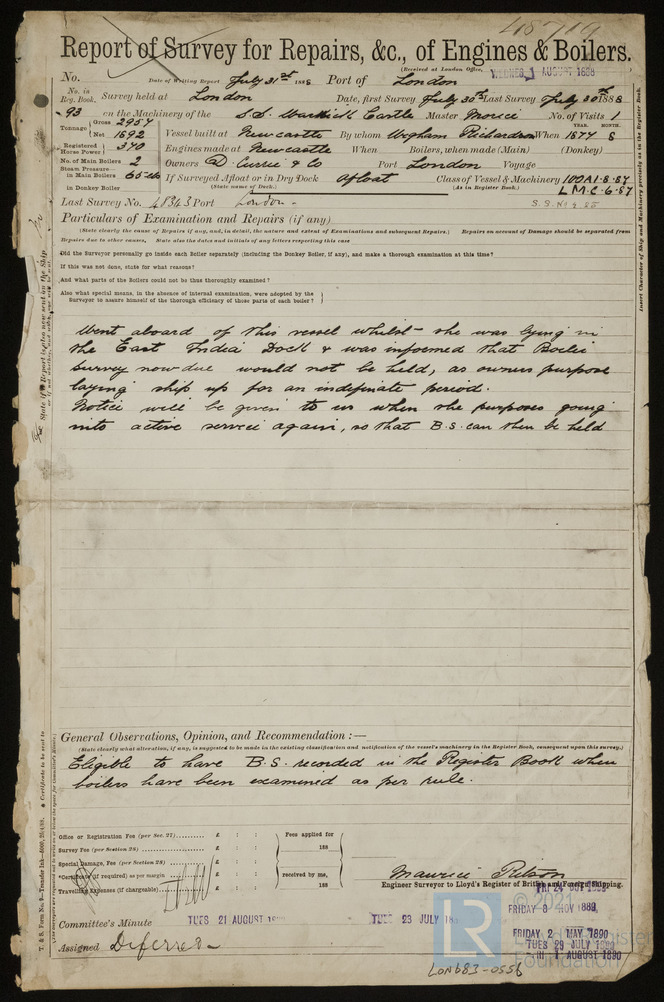 48719
Report of Survey for Repairs, &c., of Engines & Boilers.
(Received at London Office, WEDNES. 1 AUGUST 1888
No. Date of Writing Report July 31st 1888 Port of London
No. in Reg. Book. Survey held at London Date, first Survey July 30th Last Survey July 30th 1888
93 on the Machinery of the S.S. Warwick Castle Master Morice No. of Visits 1
Tonnage Gross 2957 Net 1892
Vessel built at Newcastle By whom Wigham Richardson When YEAR. 1877 MONTH. 8
Registered Horse Power 340 Engines made at Newcastle When Boilers, when made (Main) (Donkey)
No. of Main Boilers 2 Owners D. Currie & Co Port London Voyage
Steam Pressure in Main Boilers 65 lb If Surveyed Afloat or in Dry Dock Afloat Class of Vessel & Machinery 100A1-8-87
(State name of Dock.) (As in Register Book.) L.M.C.-6-87
in Donkey Boiler
Last Survey No. 48343 Port London -
Particulars of Examination and Repairs (if any)
(State clearly the cause of Repairs if any, and, in detail, the nature and extent of Examinations and subsequent Repairs.) Repairs on account of Damage should be separated from
Repairs due to other causes, State also the dates and initials of any letters respecting this case
Did the Surveyor personally go inside each Boiler separately (including the Donkey Boiler, if any), and make a thorough examination at this time?
If this was not done, state for what reasons?
And what parts of the Boilers could not be thus thoroughly examined?
Also what special means, in the absence of internal examination, were adopted by the
Surveyor to assure himself of the thorough efficiency of those parts of each boiler?
Went aboard of this vessel whilst she was lying in
the East India Dock & was informed that Boiler
Survey now due would not be held, as owners purpose
laying ship up for an indefinite period.
Notice will be given to us when she purposes going
into active service again, so that B.S. can then be held
General Observations, Opinion, and Recommendation :—
(State clearly what alteration, if any, is suggested to be made in the existing classification and notification of the vessel's machinery in the Register Book, consequent upon this survey.)
Eligible to have B.S. recorded in the Register Book when
boilers have been examined as per rule.
Office or Registration Fee (per Sec. 27)......... £ : :
Survey Fee (per Section 28) ......... £ : :
Special Damage, Fee (per Section 28) ......... £ : :
*Certificate (if required) as per margin £ : :
Travelling Expenses (if chargeable) ......... £ : :
Fees applied for
188
received by me,
188
Maurice
Engineer Surveyor to Lloyd's Register of British and Foreign Shipping.
FRIDAY 8 NOV 1889
Committee's Minute TUES 21 AUGUST TUES 23 JULY
FRIDAY 2 MAY 1890
TUES 29 JULY 1890
FRI 1 AUGUST 1890
Assigned Deferred
LR
© 2021
Foundation
LON683-0556
Insert Character of Ship and Machinery precisely as in the Register Book.